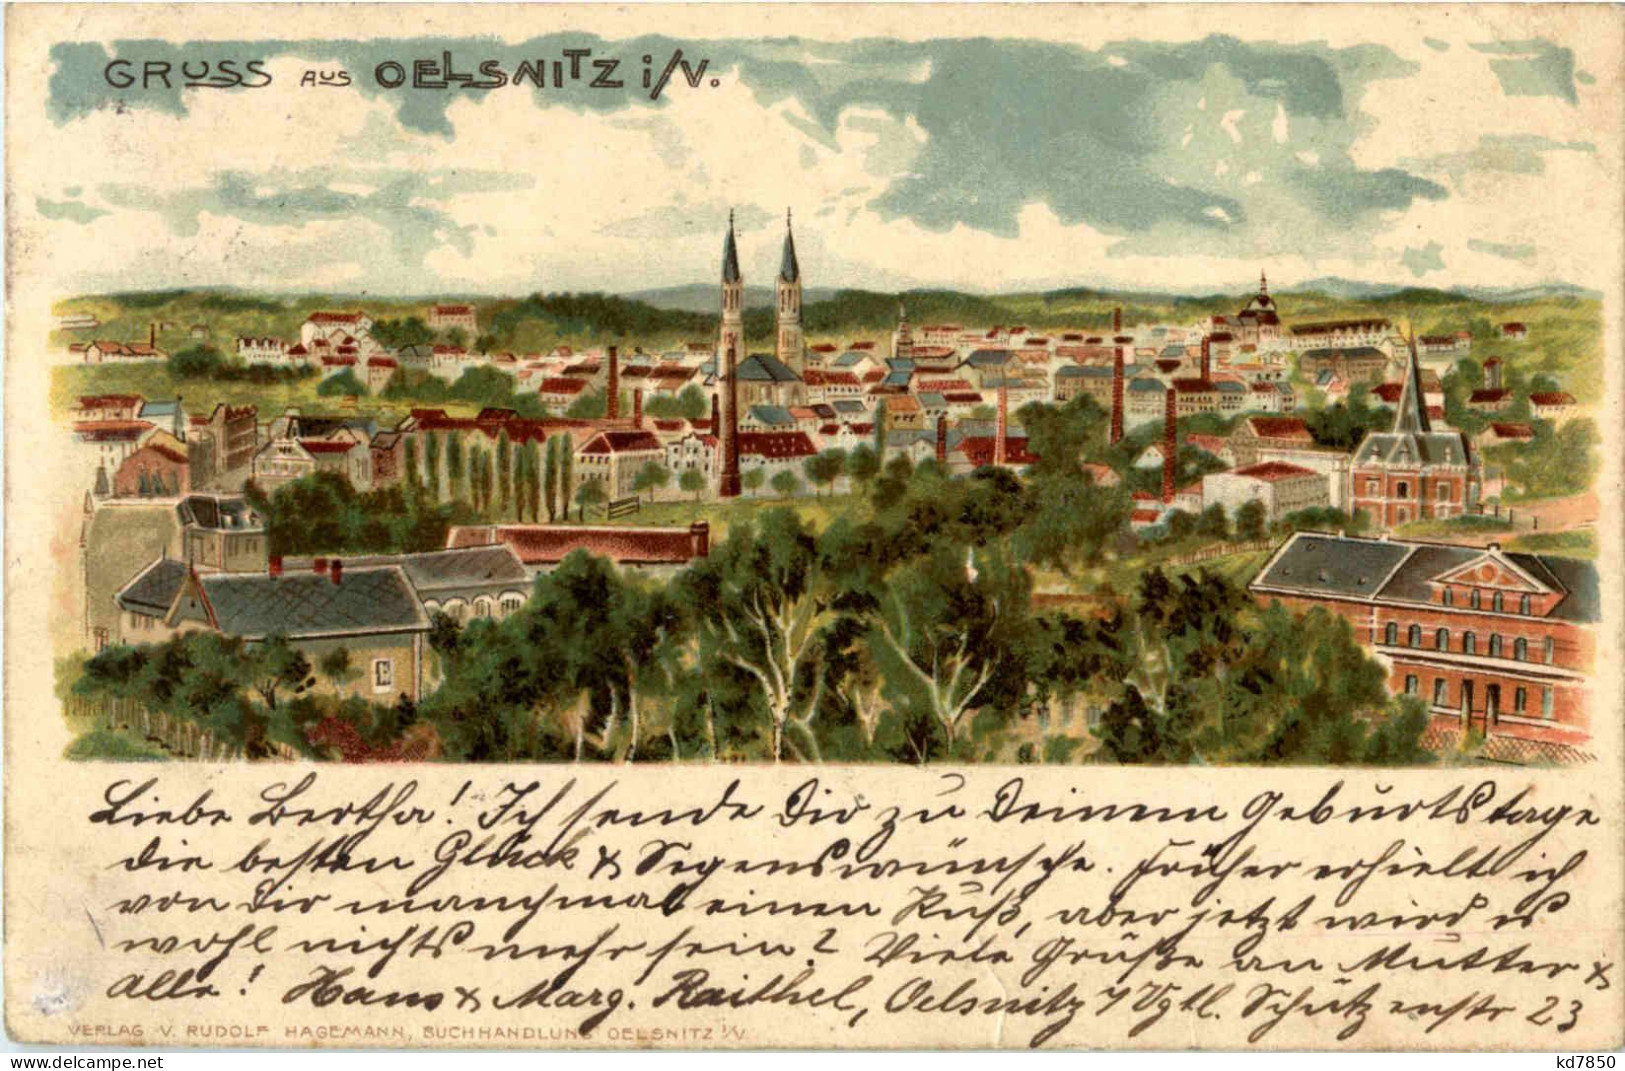 GRUSS AUS OELSNITZ i/V.
Liebe Bertha! Ich sende Dir zu Deinem Geburtstage
die besten Glück & Segenswünsche. Früher erhielt ich
von Dir manchmal einen Kuß, aber jetzt wird es
wohl nichts mehr sein? Viele Grüße an Mutter &
alle! Hans & Marg. Raithel, Oelsnitz i/Vgtl. Schützenstr 23
VERLAG V. RUDOLF HAGEMANN, BUCHHANDLUNG OELSNITZ i/V.
kd7850